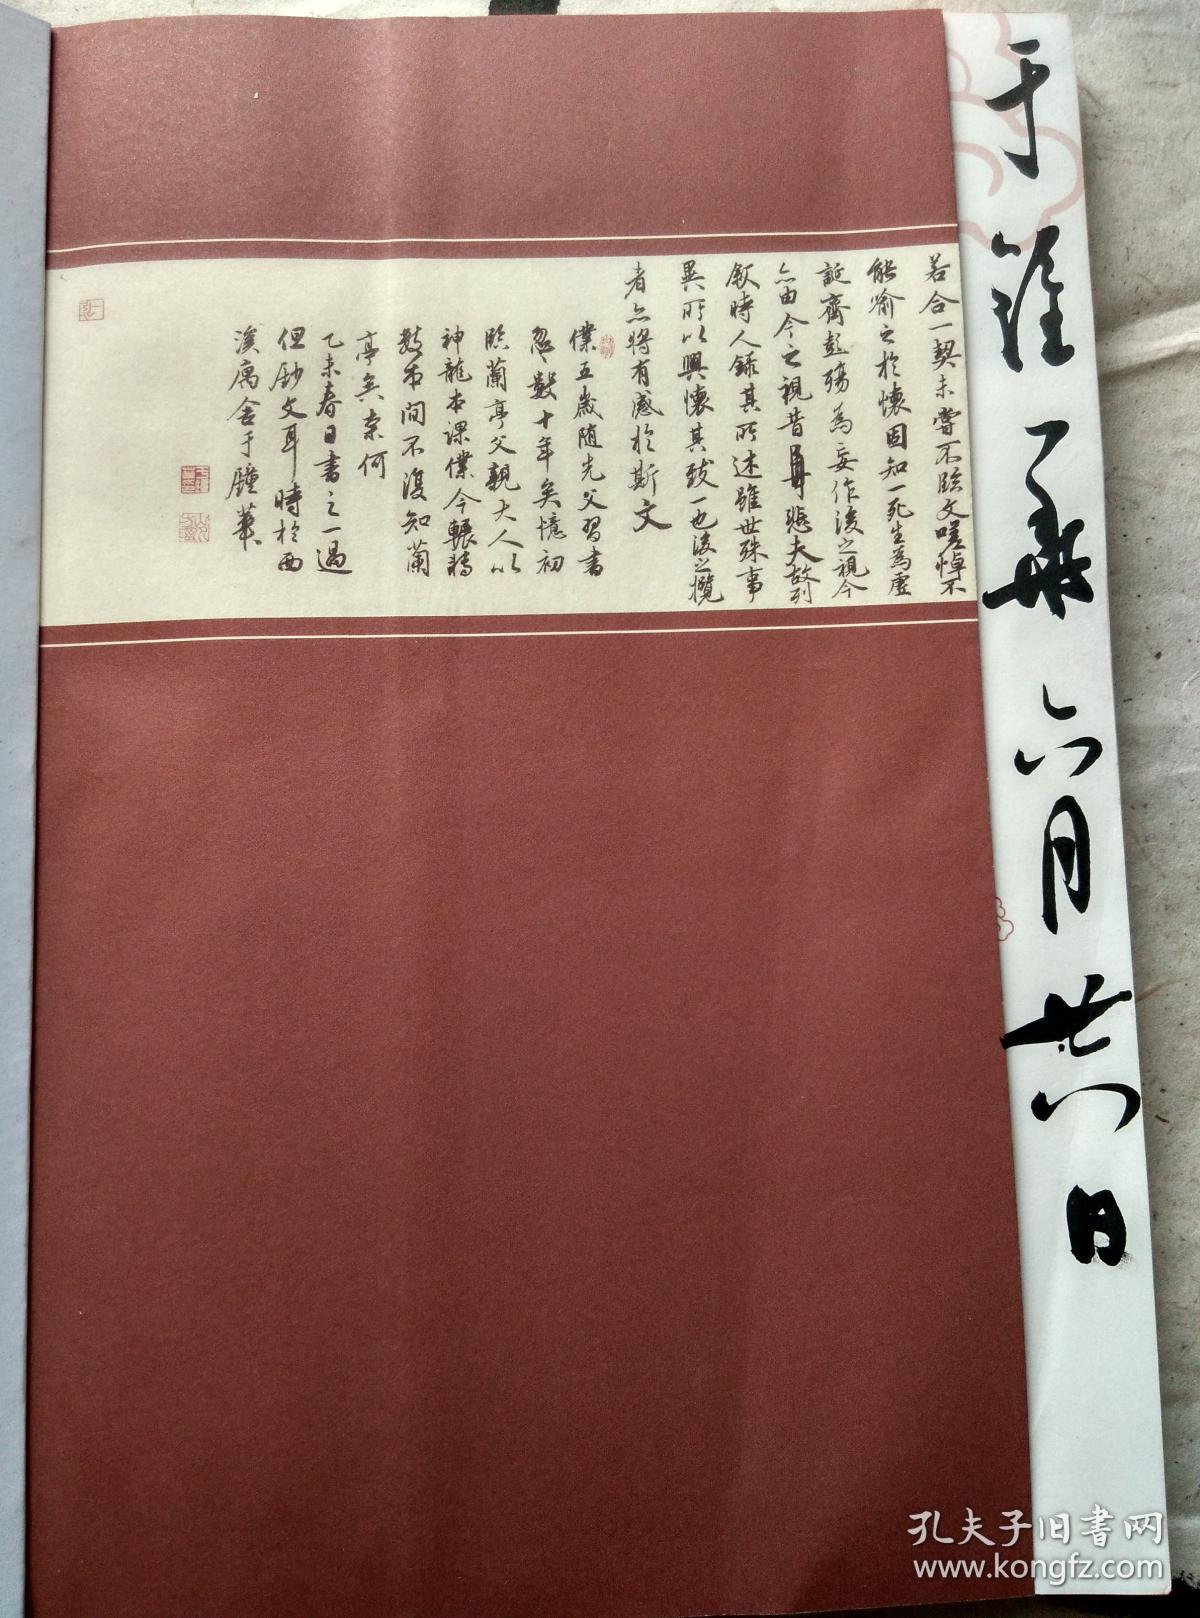 若合一契未嘗不臨文嗟悼不
能喻之於懷固知一死生為虛
誕齊彭殤為妄作後之視今
亦由今之視昔悲夫故列
敘時人錄其所述雖世殊事
異所以興懷其致一也後之攬
者亦將有感於斯文
僕五歲隨先父習書
忽數十年矣憶初
臨蘭亭父親大人以
神龍本課僕今輾轉
數本間不復知蘭
亭矣奈何
乙未春日書之一過
但鈔文耳時於西
溪寓舍于鐘華
于鐘華六月廿八日
孔夫子旧书网
www.kongfz.com